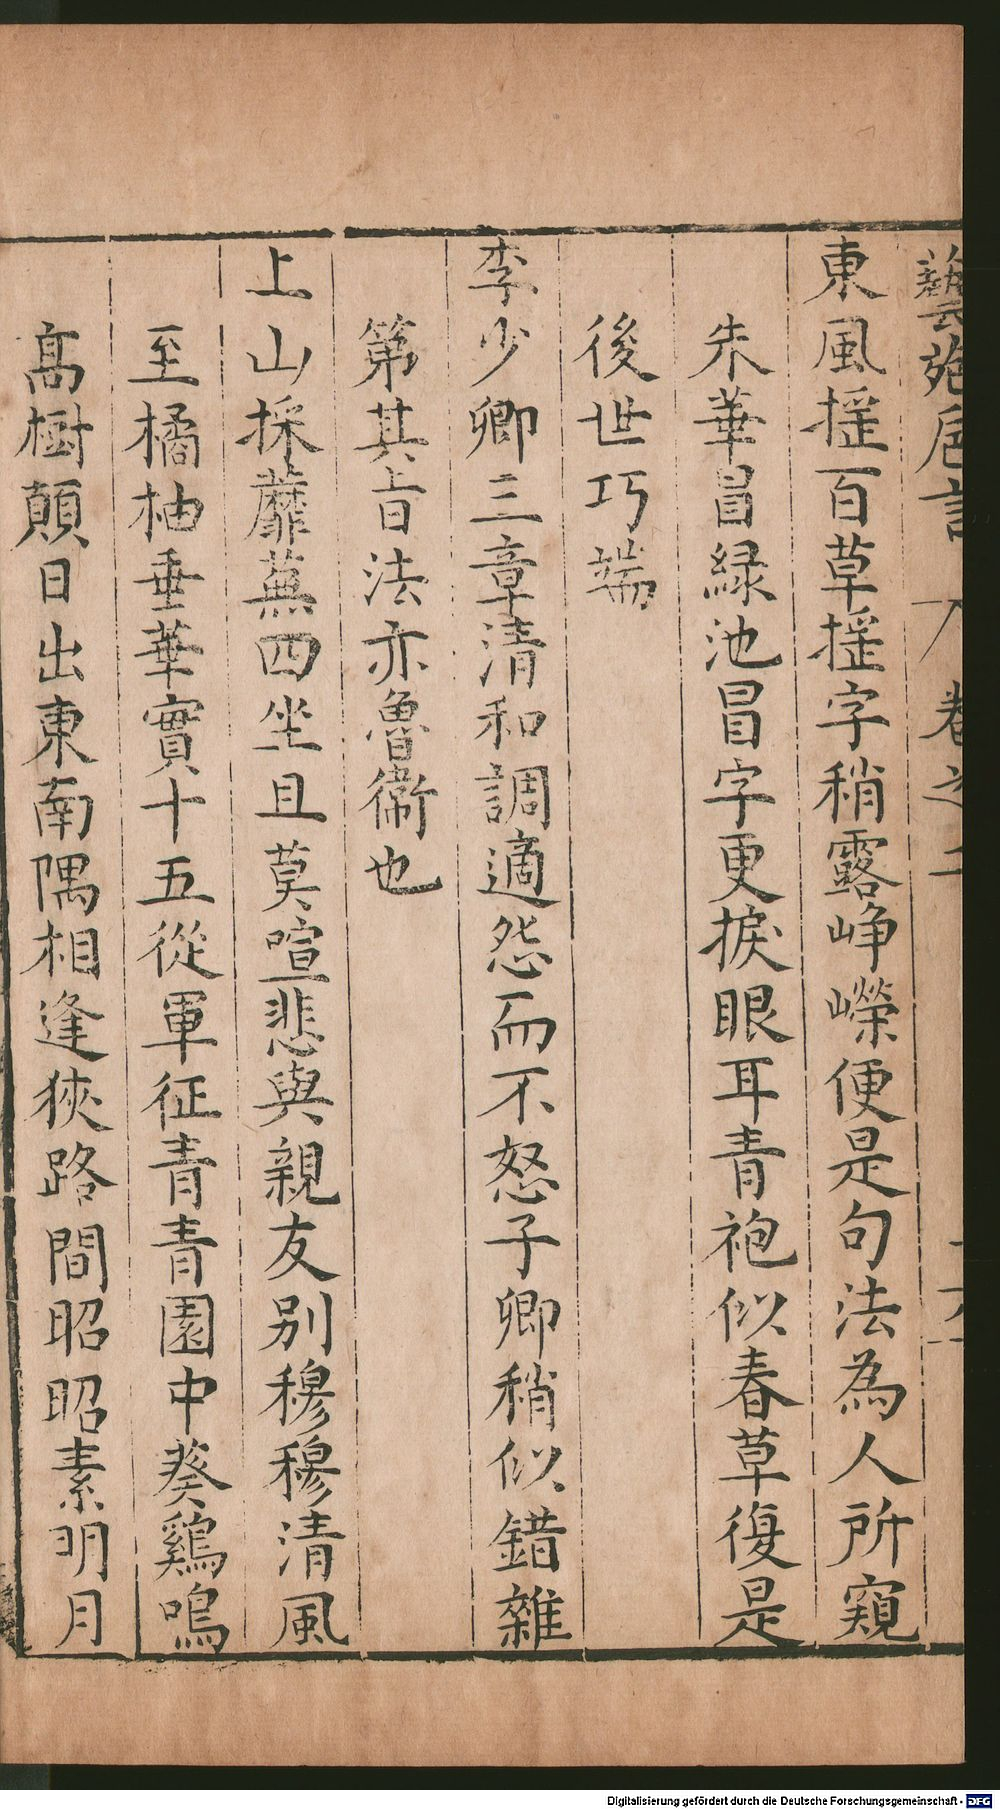 藝苑卮言 卷之二
東風揺百草揺字稍露崢嶸便是句法為人所窺
朱華冒緑池冒字更捩眼耳青袍似春草復是
後世巧端
李少卿三章清和調適怨而不怒子卿稍似錯雜
第其旨法亦魯衛也
上山採蘼蕪四坐且莫喧悲與親友别穆穆清風
至橘柚垂華實十五從軍征青青園中葵鷄鳴
髙樹顛日出東南隅相逢狹路間昭昭素明月
Digitalisierung gefördert durch die Deutsche Forschungsgemeinschaft - DFG